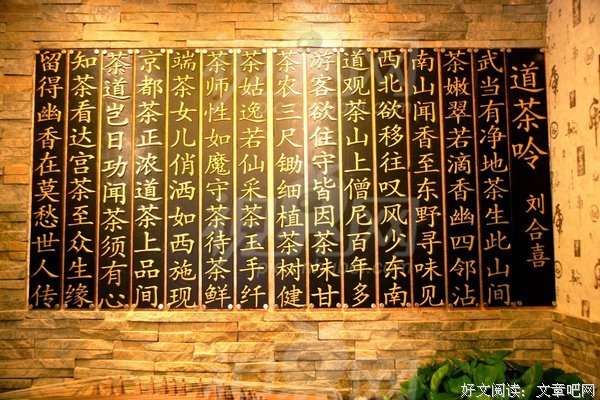 道茶吟
刘合喜
武当有净地茶生此山间
茶嫩翠若滴香幽四邻沾
南山闻香至东野寻味见
西北欲移往叹风少东南
道观茶山上僧尼百年多
游客欲住守皆因茶味甘
茶农三尺锄细植茶树健
茶姑逸若仙采茶玉手纤
茶师性如魔守茶待茶鲜
端茶女儿俏洒如西施现
京都茶正浓道茶上品间
茶道岂日功闻茶须有心
知茶看达宫茶至众生缘
留得幽香在莫愁世人传
好文阅读：文章吧网